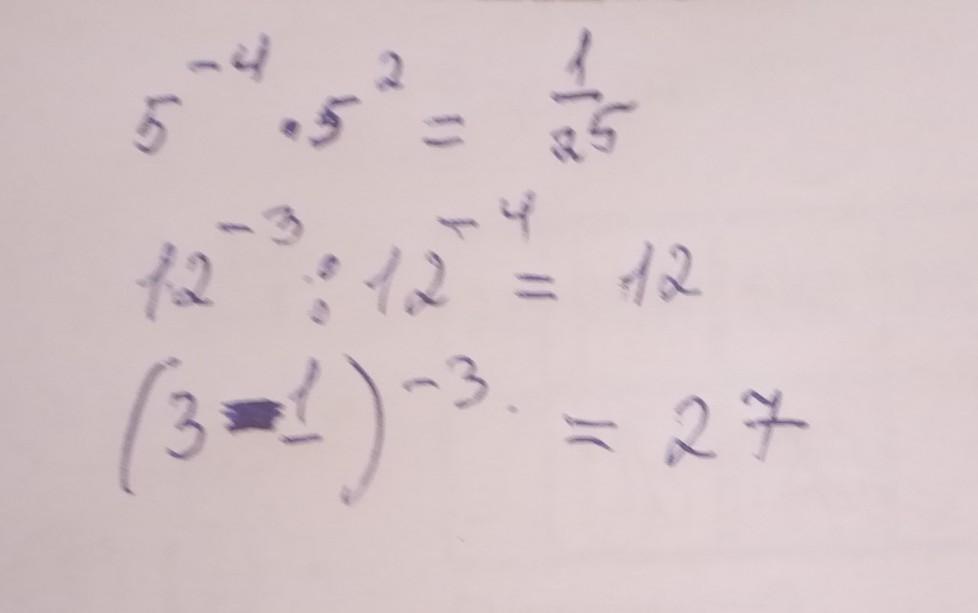 5^{-4} · 5^{2} = \frac{1}{25}
12^{-3} : 12^{-4} = 12
(3^{-1})^{-3} = 27